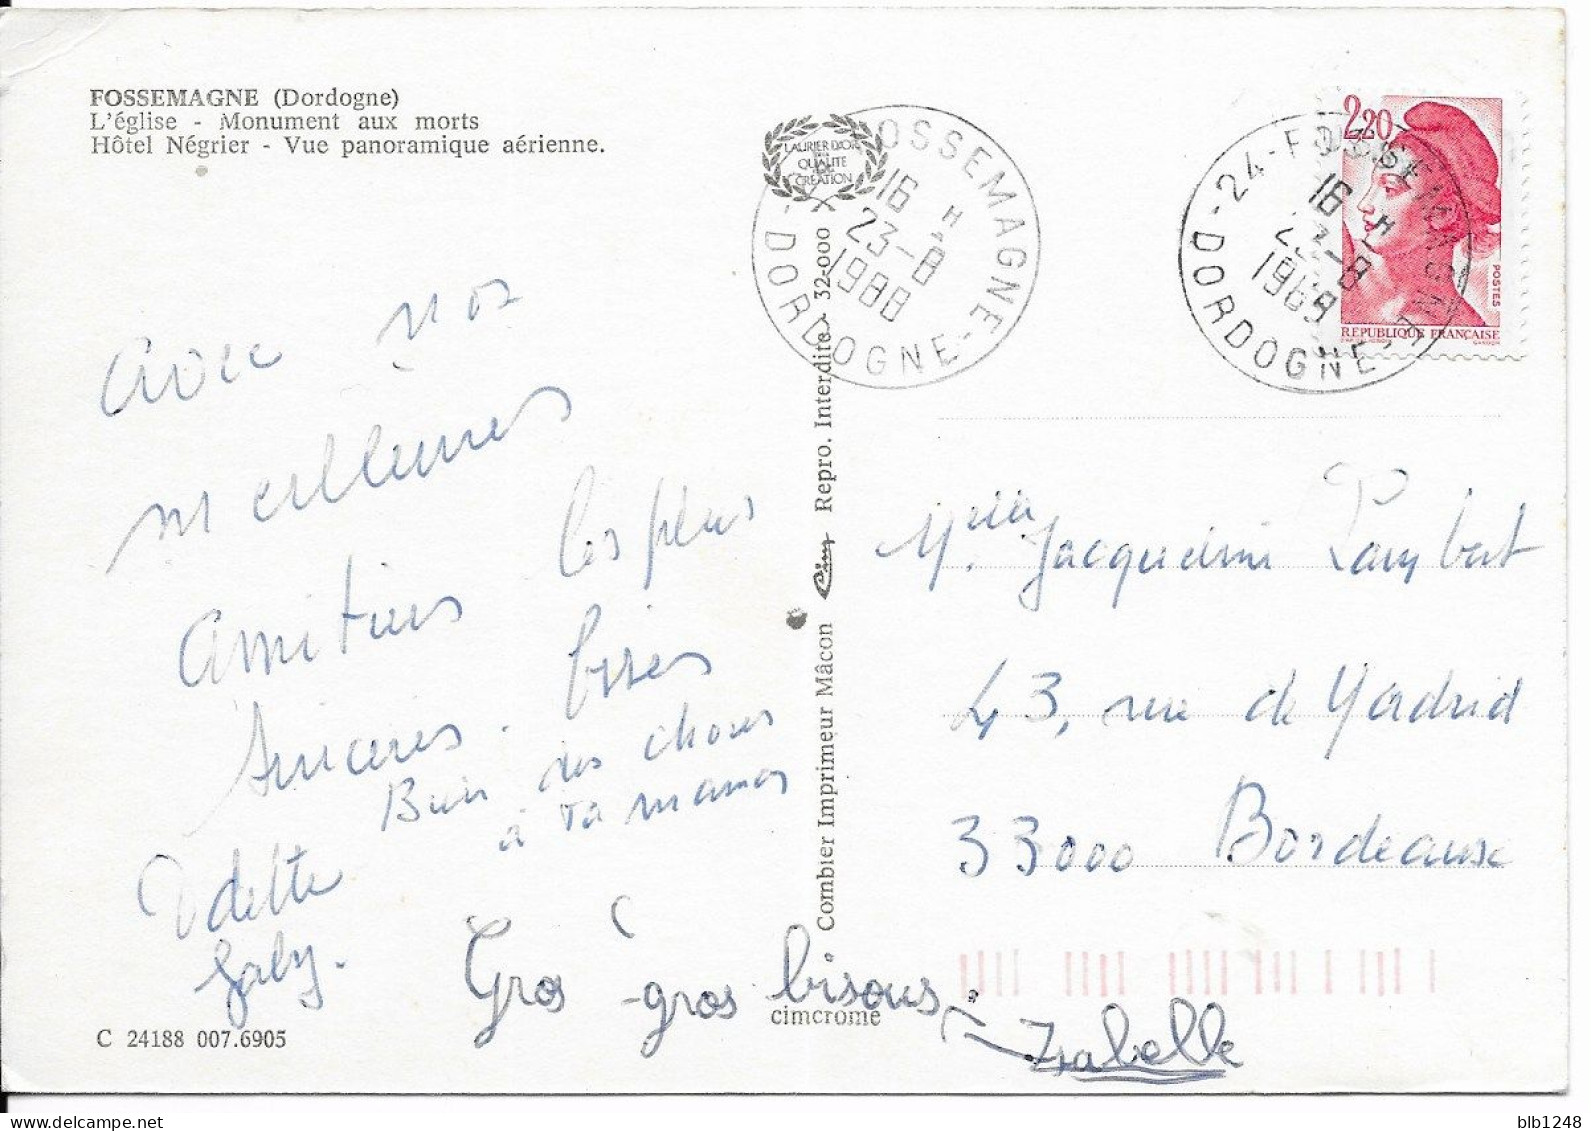 FOSSEMAGNE (Dordogne)
L'église - Monument aux morts
Hôtel Négrier - Vue panoramique aérienne.
Avec nos
meilleures
amitiés les plus
sincères. bises
Bien des choses
à ta maman
Odette
Gaby.
Gros - gros bisous
Isabelle
C 24188 007.6905
Combier Imprimeur Mâcon Cim Repro. Interdite 32-000
cimcrome
LAURIER D'OR
QUALITE
CREATION
FOSSEMAGNE
16 H
23-8
1988
-DORDOGNE-
24-FOSSEMAGNE
16 H
23-8
1988
-DORDOGNE-
2,20
POSTES
REPUBLIQUE FRANÇAISE
Melle Jacqueline Lambert
43, rue de Madrid
33000 Bordeaux
blb1248